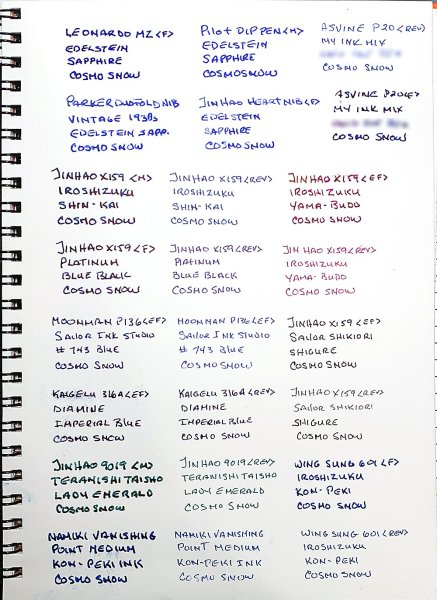 LEONARDO MZ <F>
EDELSTEIN
SAPPHIRE
COSMO SNOW
PILOT DIP PEN <M>
EDELSTEIN
SAPPHIRE
COSMOSNOW
ASVINE P20 <REV>
MY INK MIX
COSMO SNOW
PARKER DUOFOLD NIB
VINTAGE 1930s
EDELSTEIN SAPP.
COSMO SNOW
JINHAO HEART NIB <F>
EDELSTEIN
SAPPHIRE
COSMO SNOW
ASVINE P20 <F>
MY INK MIX
COSMO SNOW
JINHAO X159 <M>
IROSHIZUKU
SHIN-KAI
COSMO SNOW
JINHAO X159 <REV>
IROSHIZUKU
SHIN-KAI
COSMO SNOW
JINHAO X159 <EF>
IROSHIZUKU
YAMA-BUDO
COSMO SNOW
JINHAO X159 <F>
PLATINUM
BLUE BLACK
COSMO SNOW
JINHAO X159 <REV>
PLATINUM
BLUE BLACK
COSMO SNOW
JINHAO X159 <REV>
IROSHIZUKU
YAMA-BUDO
COSMO SNOW
MOONMAN P136 <EF>
SAILOR INK STUDIO
# 743 BLUE
COSMO SNOW
MOONMAN P136 <EF>
SAILOR INK STUDIO
# 743 BLUE
COSMO SNOW
JINHAO X159 <EF>
SAILOR SHIKIORI
SHIGURE
COSMO SNOW
KAIGELU 316A <EF>
DIAMINE
IMPERIAL BLUE
COSMO SNOW
KAIGELU 316A <REV>
DIAMINE
IMPERIAL BLUE
COSMO SNOW
JINHAO X159 <REV>
SAILOR SHIKIORI
SHIGURE
COSMO SNOW
JINHAO 9019 <M>
TERANISHI TAISHO
LADY EMERALD
COSMO SNOW
JINHAO 9019 <REV>
TERANISHI TAISHO
LADY EMERALD
COSMO SNOW
WING SUNG 601 <F>
IROSHIZUKU
KON-PEKI
COSMO SNOW
NAMIKI VANISHING
POINT MEDIUM
KON-PEKI INK
COSMO SNOW
NAMIKI VANISHING
POINT MEDIUM
KON-PEKI INK
COSMO SNOW
WING SUNG 601 <REV>
IROSHIZUKU
KON-PEKI
COSMO SNOW